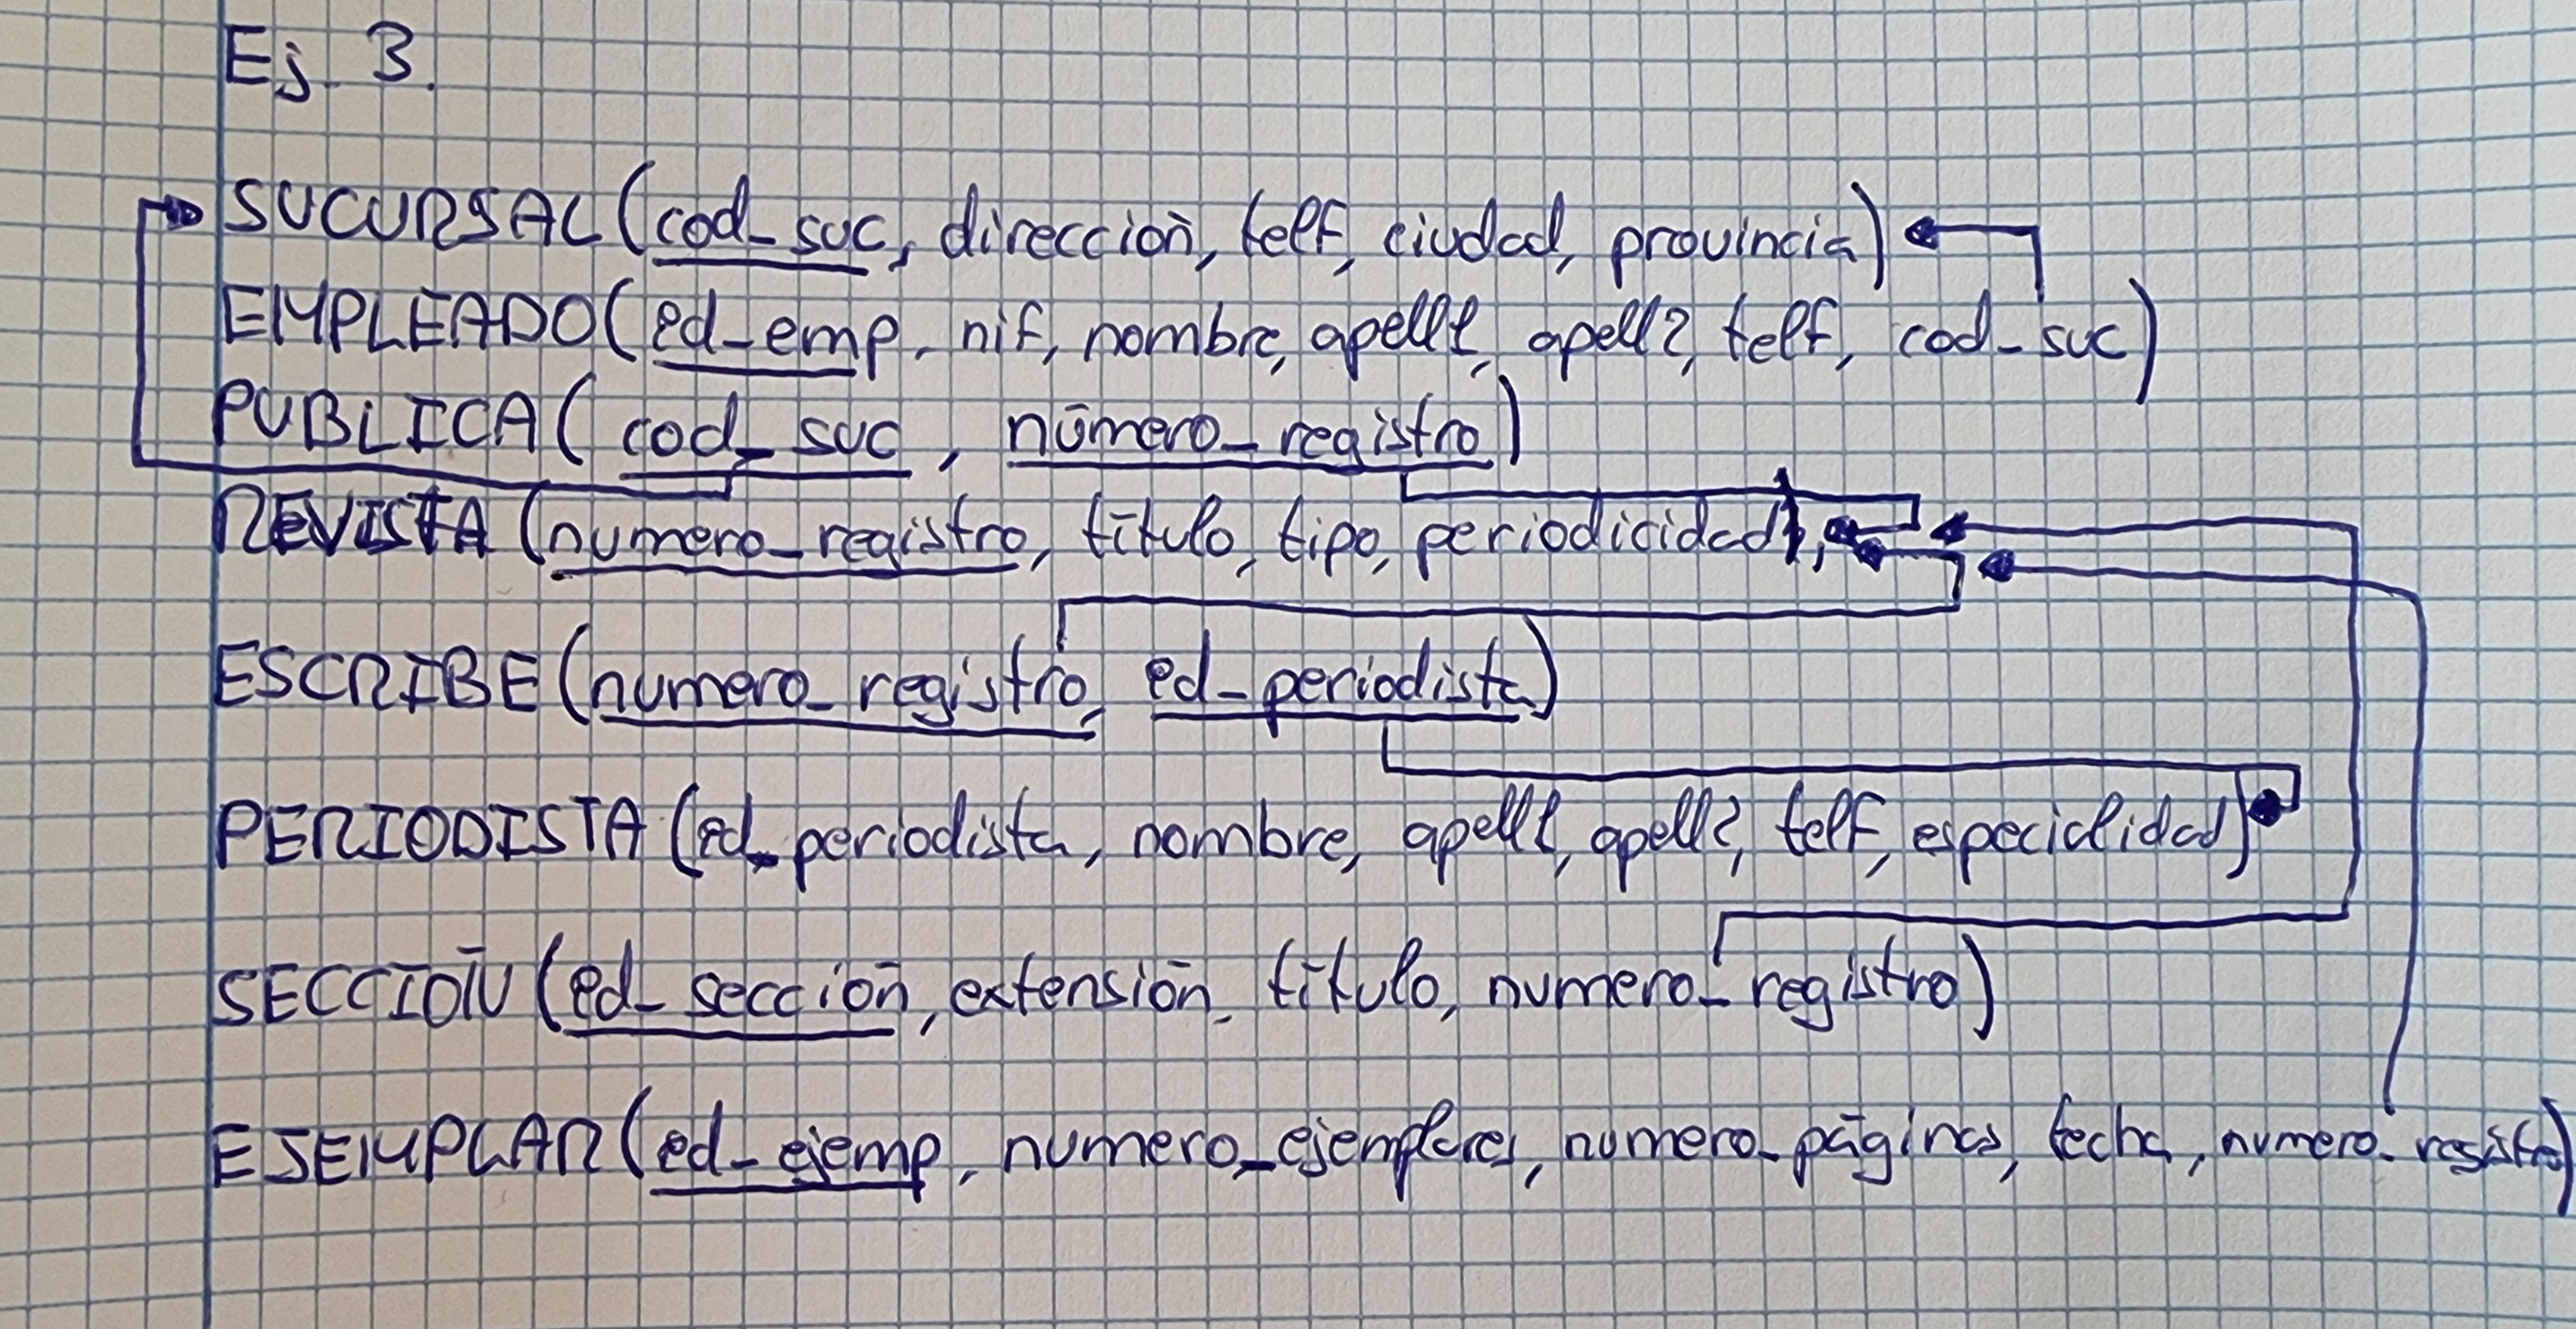 Ej. 3.
SUCURSAL (cod_suc, dirección, telf, ciudad, provincia)
EMPLEADO (id_emp, nif, nombre, apell1, apell2, telf, cod_suc)
PUBLICA ( cod_suc , número_registro)
REVISTA (numero_registro, título, tipo, periodicidad),
ESCRIBE (numero_registro, id_periodista)
PERIODISTA (id_periodista, nombre, apell1, apell2, telf, especialidad)
SECCIÓN (id_sección, extensión, título, numero_registro)
EJEMPLAR (id_ejemp, numero_ejemplares, numero_páginas, fecha, numero_registro)